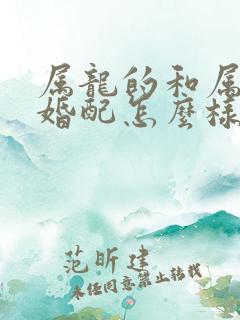 属龍的和属
婚配怎麼樣
范昕建
未任同意禁止转载